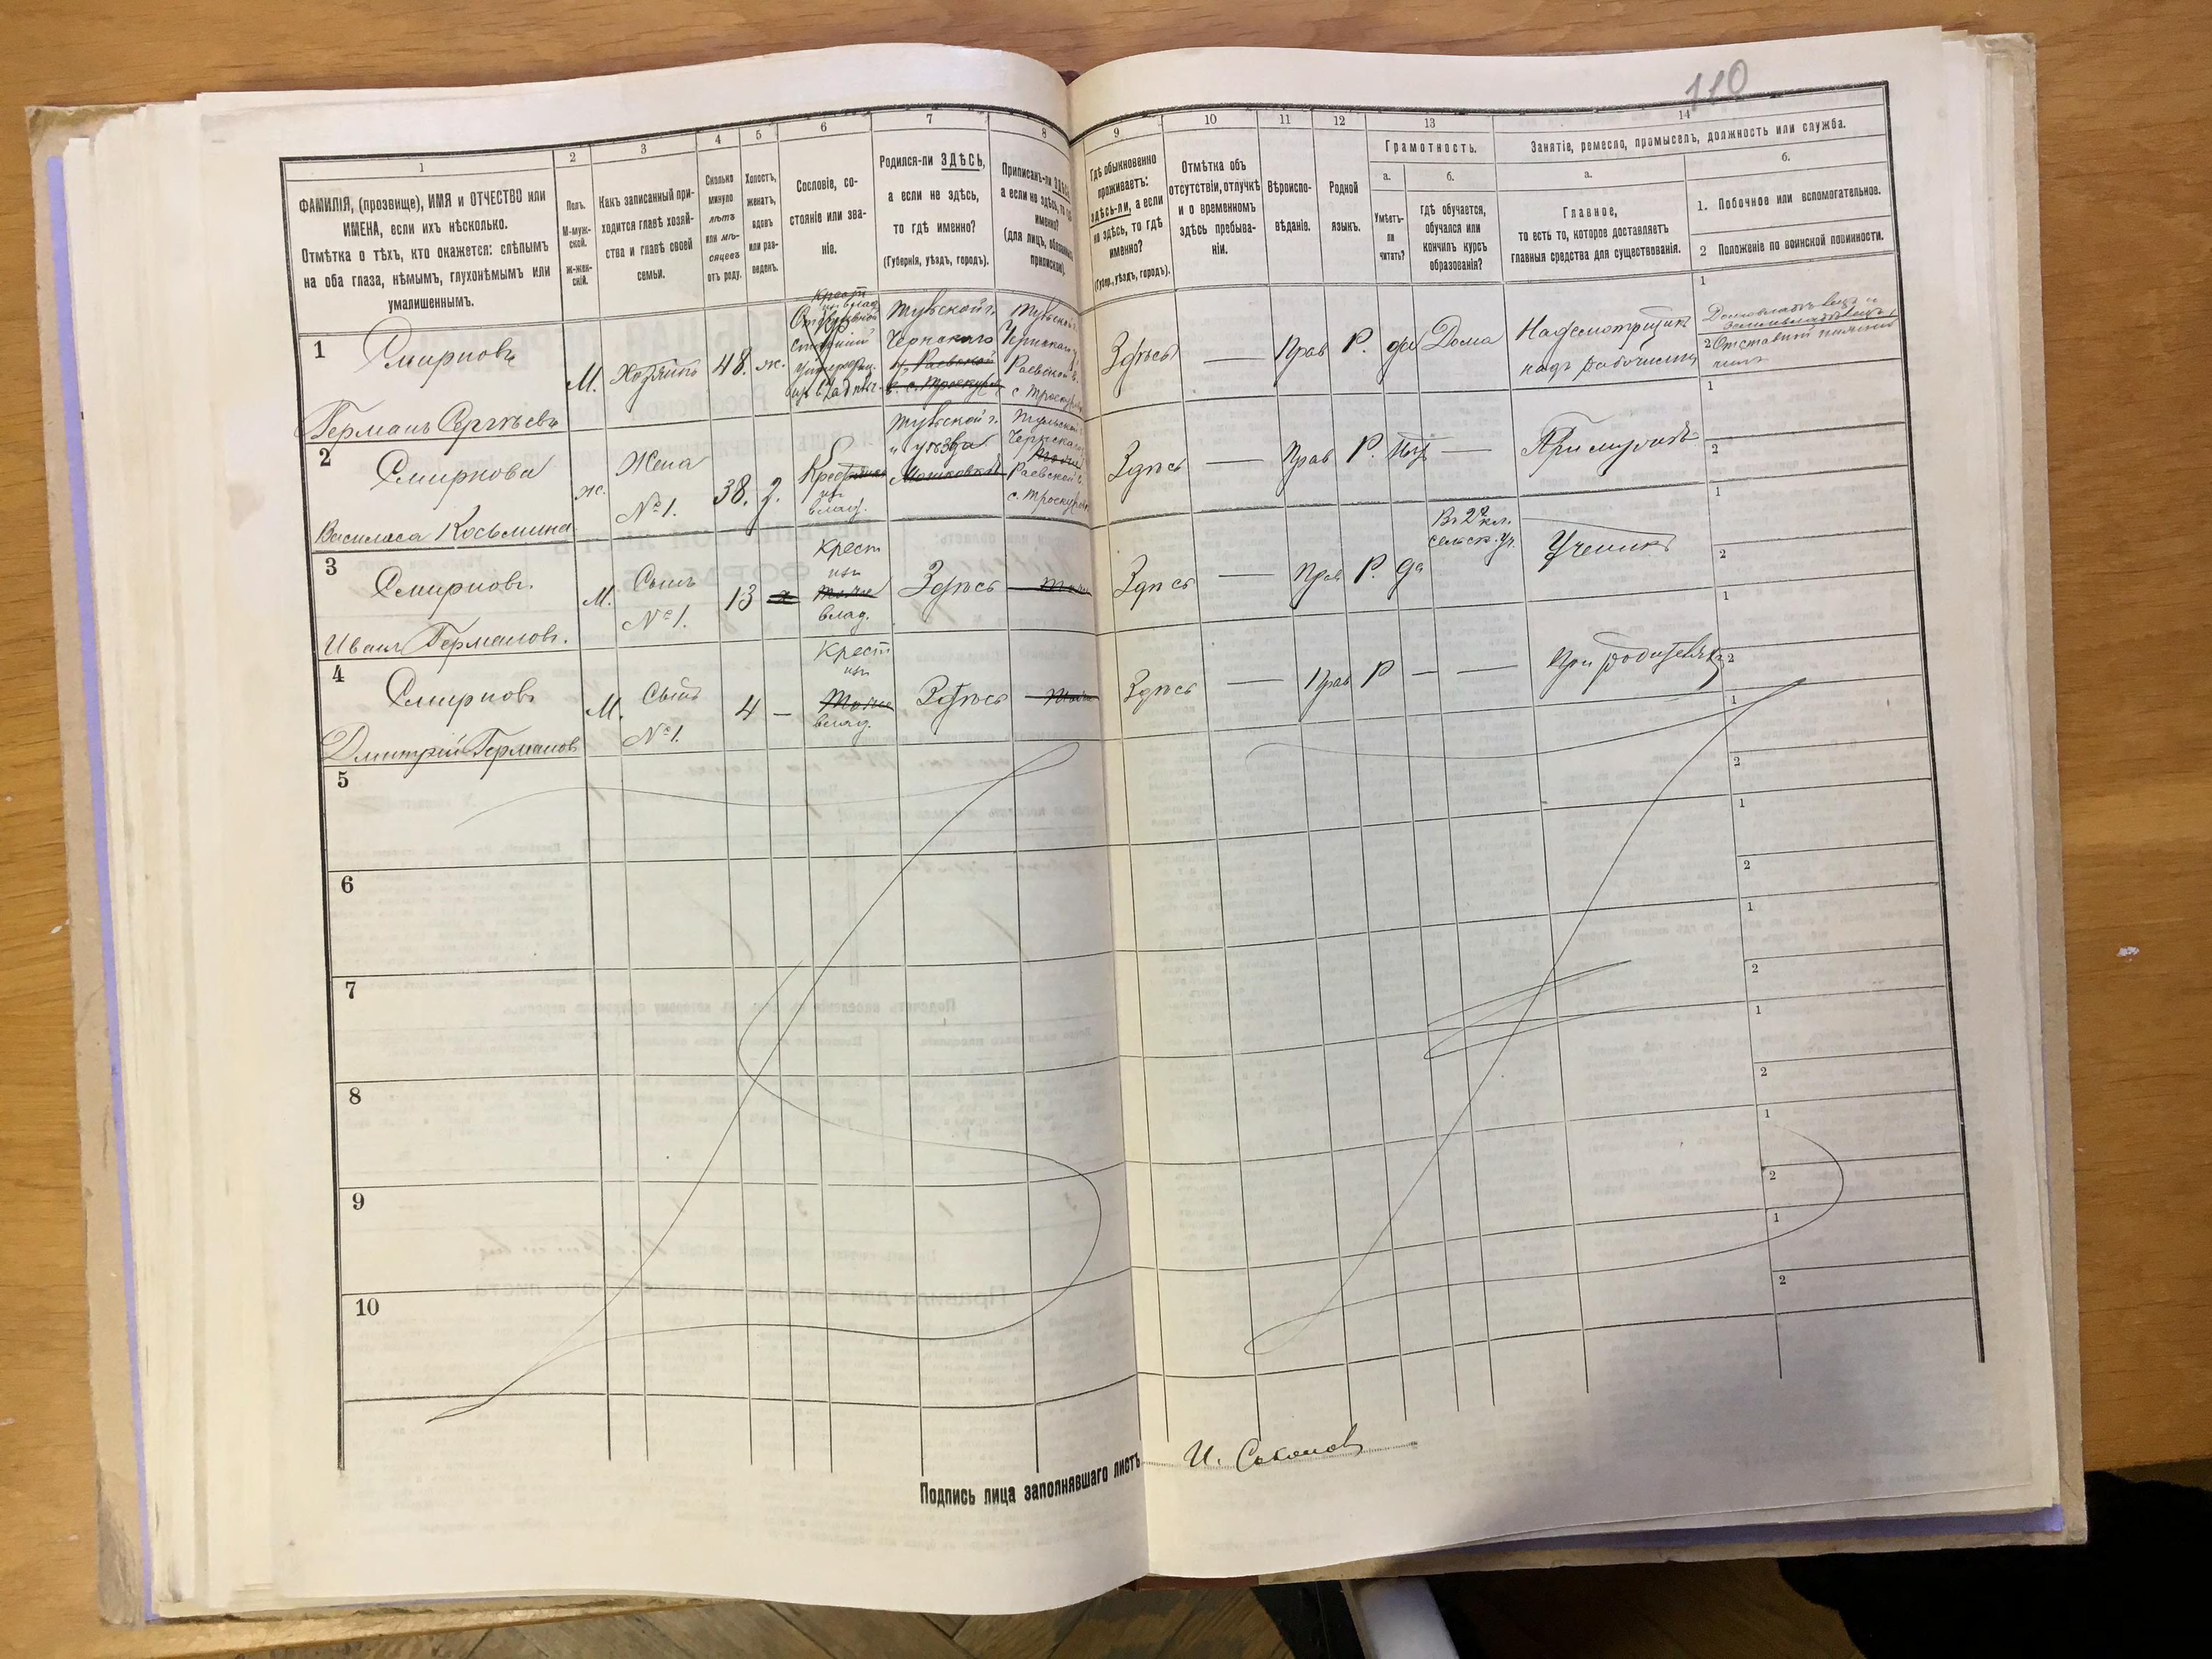 110
1
2
3
4
5
6
7
8
9
10
11
12
13
14
ФАМИЛІЯ, (прозвище), ИМЯ и ОТЧЕСТВО или
ИМЕНА, если ихъ нѣсколько.
Отмѣтка о тѣхъ, кто окажется: слѣпымъ
на оба глаза, нѣмымъ, глухонѣмымъ или
умалишеннымъ.
Полъ.
М-муж-
ской.
Ж-жен-
скій.
Какъ записанный при-
ходится главѣ хозяй-
ства и главѣ своей
семьи.
Сколько
минуло
лѣтъ
или мѣ-
сяцевъ
отъ роду.
Холостъ,
женатъ,
вдовъ
или раз-
веденъ.
Сословіе, со-
стояніе или зва-
ніе.
Родился-ли ЗДѢСЬ,
а если не здѣсь,
то гдѣ именно?
(Губернія, уѣздъ, городъ).
Приписанъ-ли ЗДѢСЬ,
а если не здѣсь, то гдѣ
именно?
(для лицъ, обязанныхъ
припискою).
Гдѣ обыкновенно
проживаетъ:
здѣсь-ли, а если
не здѣсь, то гдѣ
именно?
(Губер., уѣздъ, городъ).
Отмѣтка объ
отсутствіи, отлучкѣ
и о временномъ
здѣсь пребыва-
ніи.
Вѣроиспо-
вѣданіе.
Родной
языкъ.
Грамотность.
а.
Умѣетъ-
ли
читать?
б.
гдѣ обучается,
обучался или
кончилъ курсъ
образованія?
Занятіе, ремесло, промыселъ, должность или служба.
а.
Главное,
то есть то, которое доставляетъ
главныя средства для существованія.
б.
1. Побочное или вспомогательное.
2 Положеніе по воинской повинности.
1
Смирновъ
Германъ Сергѣевъ
М.
Хозяинъ
48.
ж.
Крест
изъ влад.
Тульской г.
Чернскаго
Раевской
с. Троскур
Тульской г.
Чернскаго у.
Раевской в.
с. Троскур
Здѣсь
—
Прав
Р.
да
Дома
Надсмотрщикъ
надъ рабочими
1
Домовладѣлецъ и
землевладѣлецъ
2 Отставной нижній
чинъ
2
Смирнова
Василиса Косьмина
ж.
Жена
№ 1.
38.
з.
Крест
изъ
влад.
Тульской г.
" уѣзда
Тульской
Чернскаго
Раевской в.
с. Троскур
Здѣсь
—
Прав
Р.
нѣт
—
При мужѣ
1
2
3
Смирновъ
Иванъ Германовъ.
М.
Сынъ
№ 1.
13
Крест
изъ
влад.
Здѣсь
Здѣсь
—
Прав
Р.
да
Въ 2 кл.
сельск. уч.
Ученикъ
1
2
4
Смирновъ
Дмитрій Германов
М.
Сынъ
№ 1.
4
—
Крест
изъ
влад.
Здѣсь
Здѣсь
—
Прав
Р
—
—
При родителяхъ
1
2
5
1
2
6
1
2
7
1
2
8
1
2
9
1
2
10
1
2
Подпись лица заполнявшаго листъ
И. Соколов